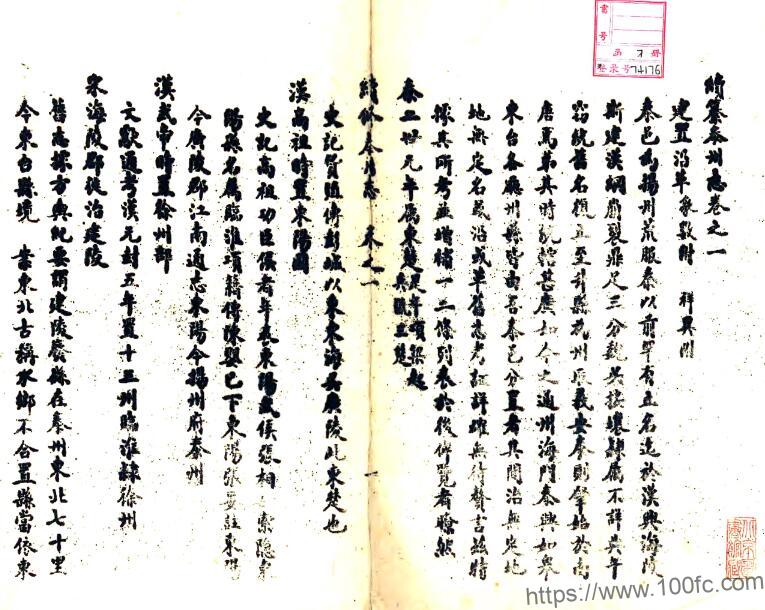 續纂泰州志卷之一
建置沿革 象數附 祥異附
泰邑為揚州荒服秦以前罕有立名迄於漢興海陵
斯建漢綱崩裂鼎足三分魏吳接壤隸屬不詳典午
竊統舊名復立至升縣為州厥義安泰則肇始於南
唐焉第其時統轄甚廣如今之通州海門泰興如皋
東台各廳州縣皆由吾泰邑分置者其間治無定地
地無定名或沿或革舊志考証詳確無待贅言茲特
據其所考並增補一二條列表於後俾覽者瞭然
秦二世元年屬東楚 是年項梁起兵復立楚
續修泰州志 卷之一 一
史記貨殖傳彭城以東東海吳廣陵此東楚也
漢高祖時置東陽國
史記高祖功臣侯者年表東陽武侯張相 索隱東
陽縣名屬臨淮項籍傳陳嬰已下東陽張晏註東陽
今廣陵郡江南通志東陽今揚州府泰州
漢武帝時置徐州部
文獻通考漢元封五年置十三州臨淮隸徐州
宋海陵郡徙治建陵
舊志據方輿紀要謂建陵廢縣在泰州東北七十里
今東台縣境 案東北古稱水鄉不合置縣當依東
書號
函 册
登录号 74176
https://www.100fc.com